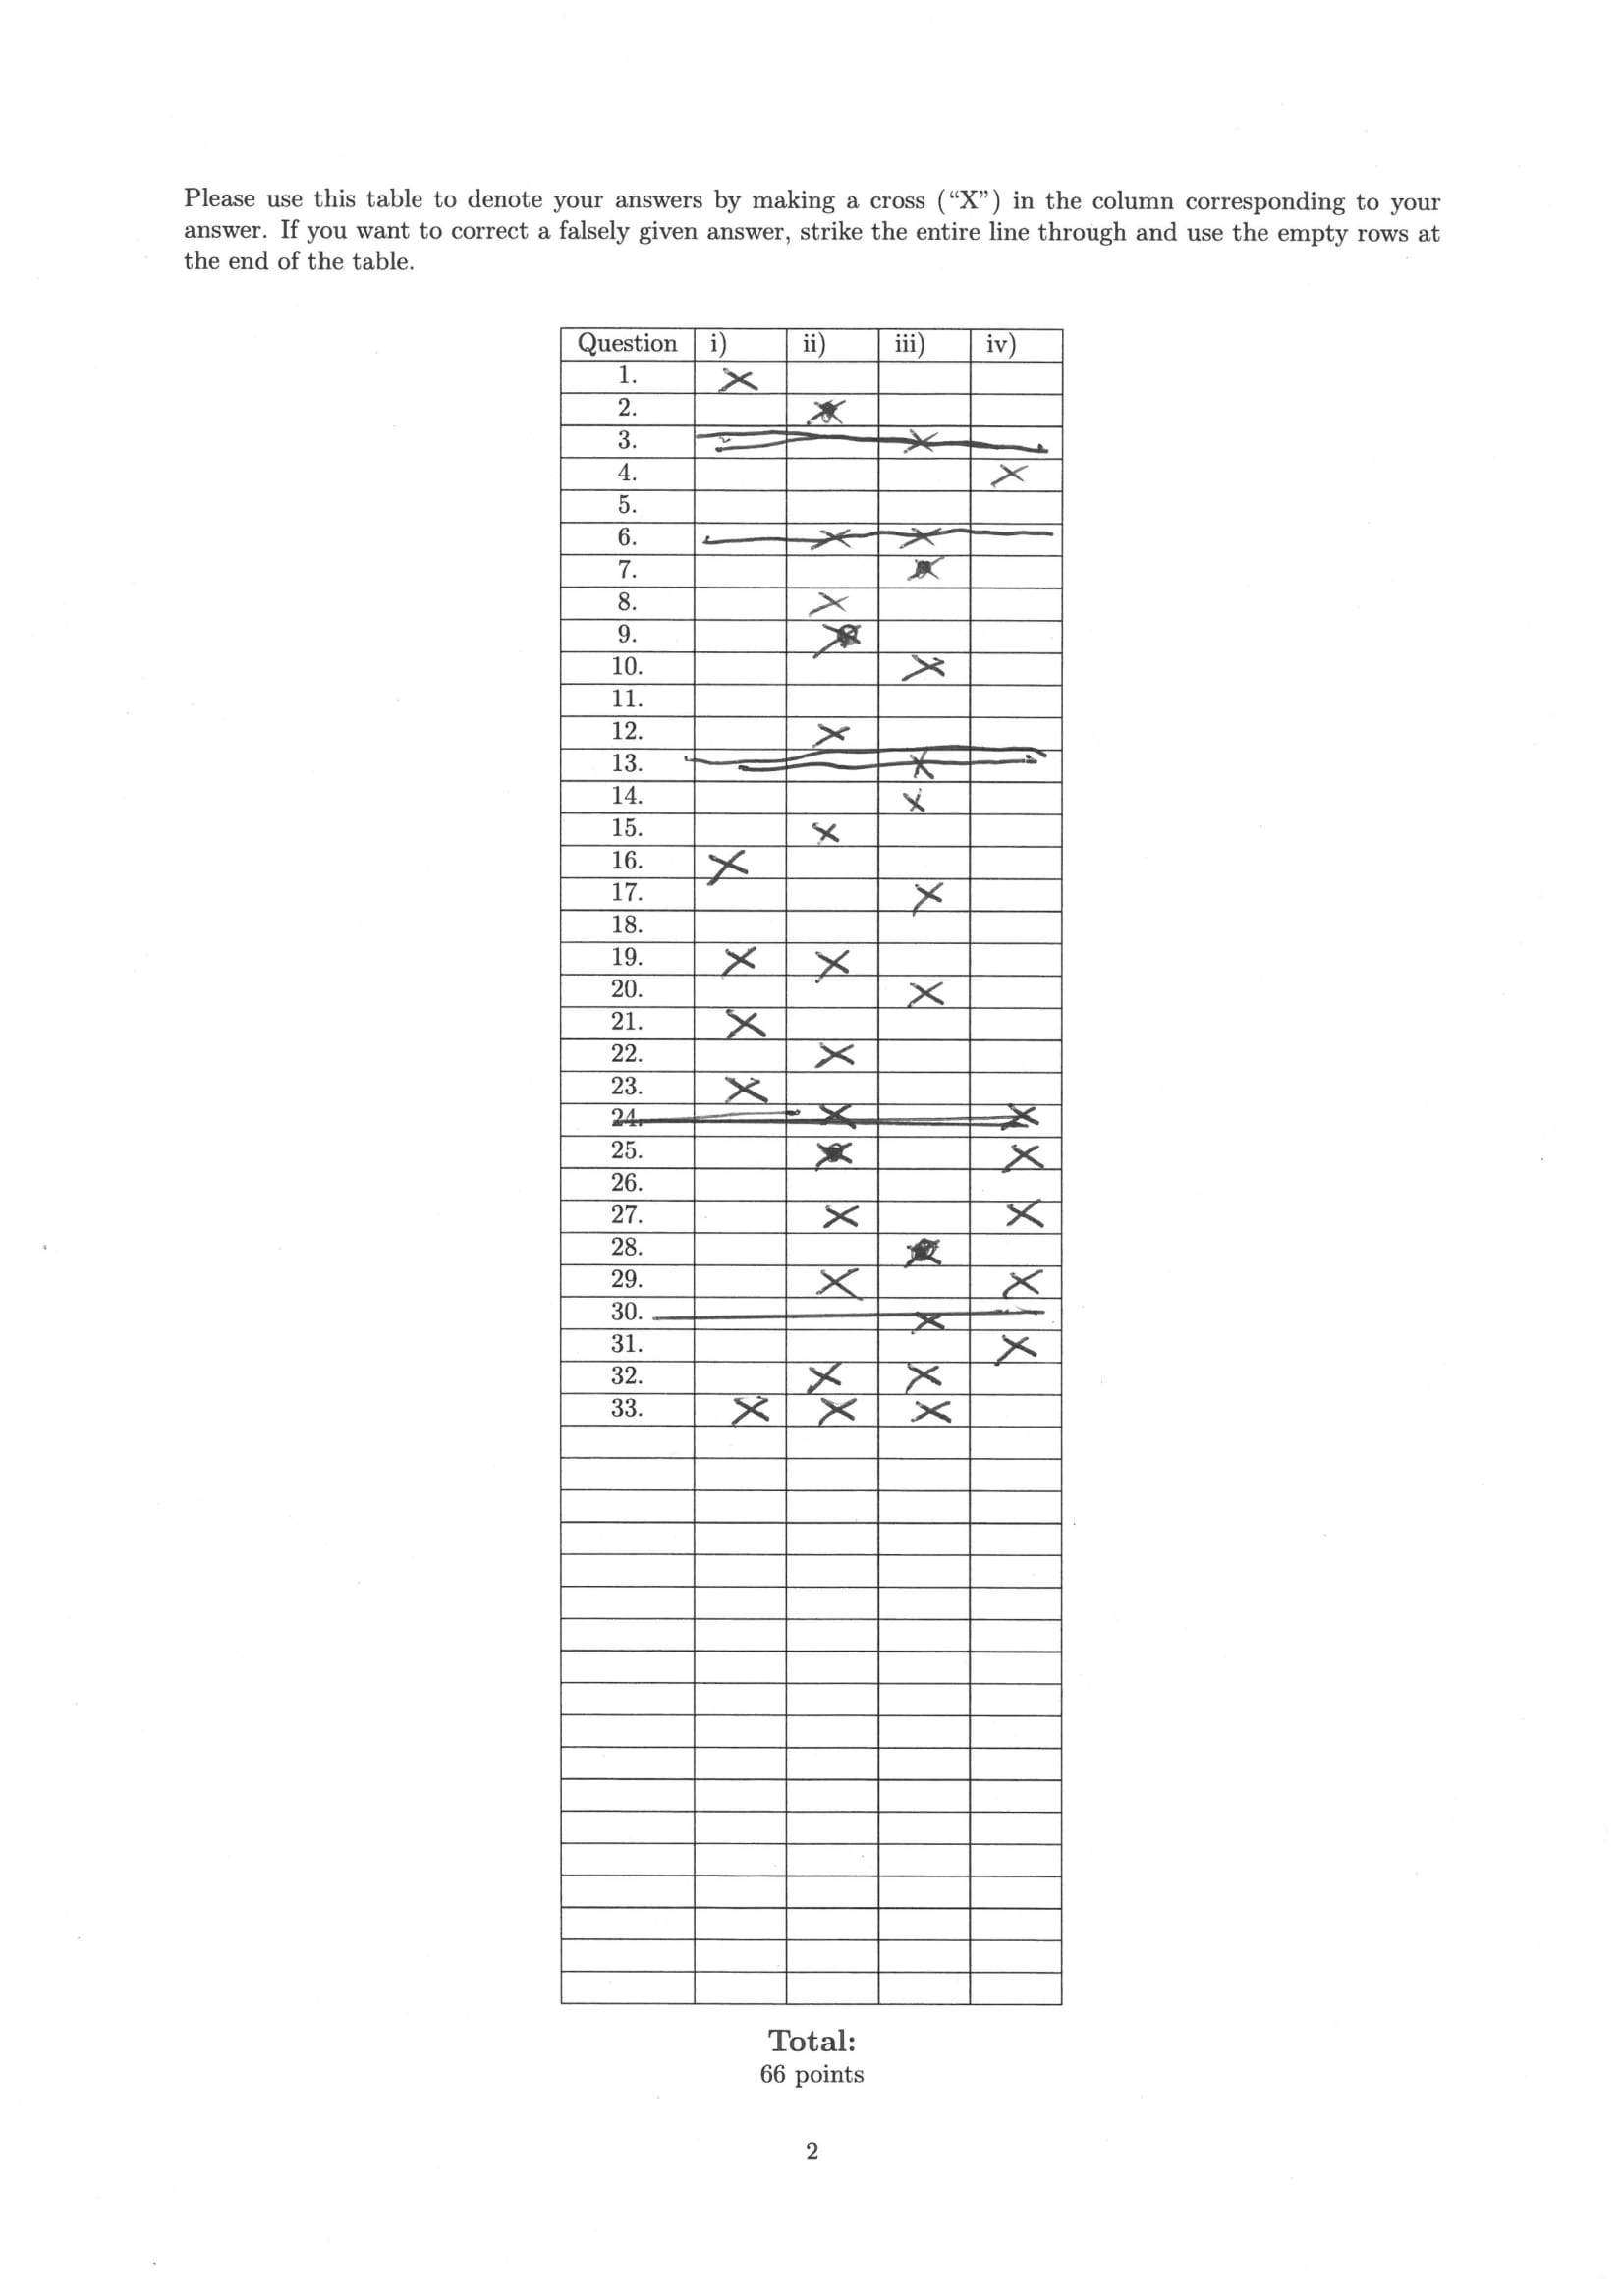 Please use this table to denote your answers by making a cross (“X”) in the column corresponding to your
answer. If you want to correct a falsely given answer, strike the entire line through and use the empty rows at
the end of the table.
Question i) ii) iii) iv)
1. X
2. X
3. X
4. X
5.
6. X X
7. X
8. X
9. X
10. X
11.
12. X
13. X
14. X
15. X
16. X
17. X
18.
19. X X
20. X
21. X
22. X
23. X
24. X X
25. X X
26.
27. X X
28. X
29. X X
30. X
31. X
32. X X
33. X X X
Total:
66 points
2